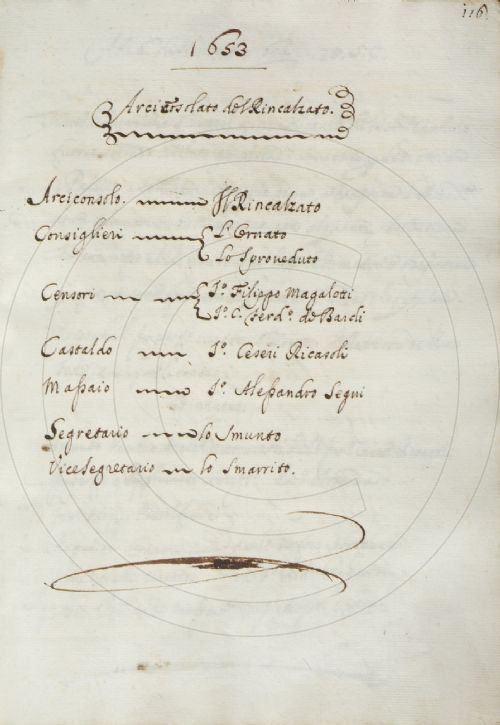 116
1653
Arciconsolato del Rincalzato.
Arciconsolo. Il Rincalzato
Consiglieri L'Ornato
Lo Sproveduto
Censori Sr. Filippo Magalotti
Sr. C. Ferdo. de Bardi
Castaldo Sr. Ceseri Ricasoli
Massaio Sr. Alessandro Segni
Segretario lo Smunto
Vicesegretario lo Smarrito.